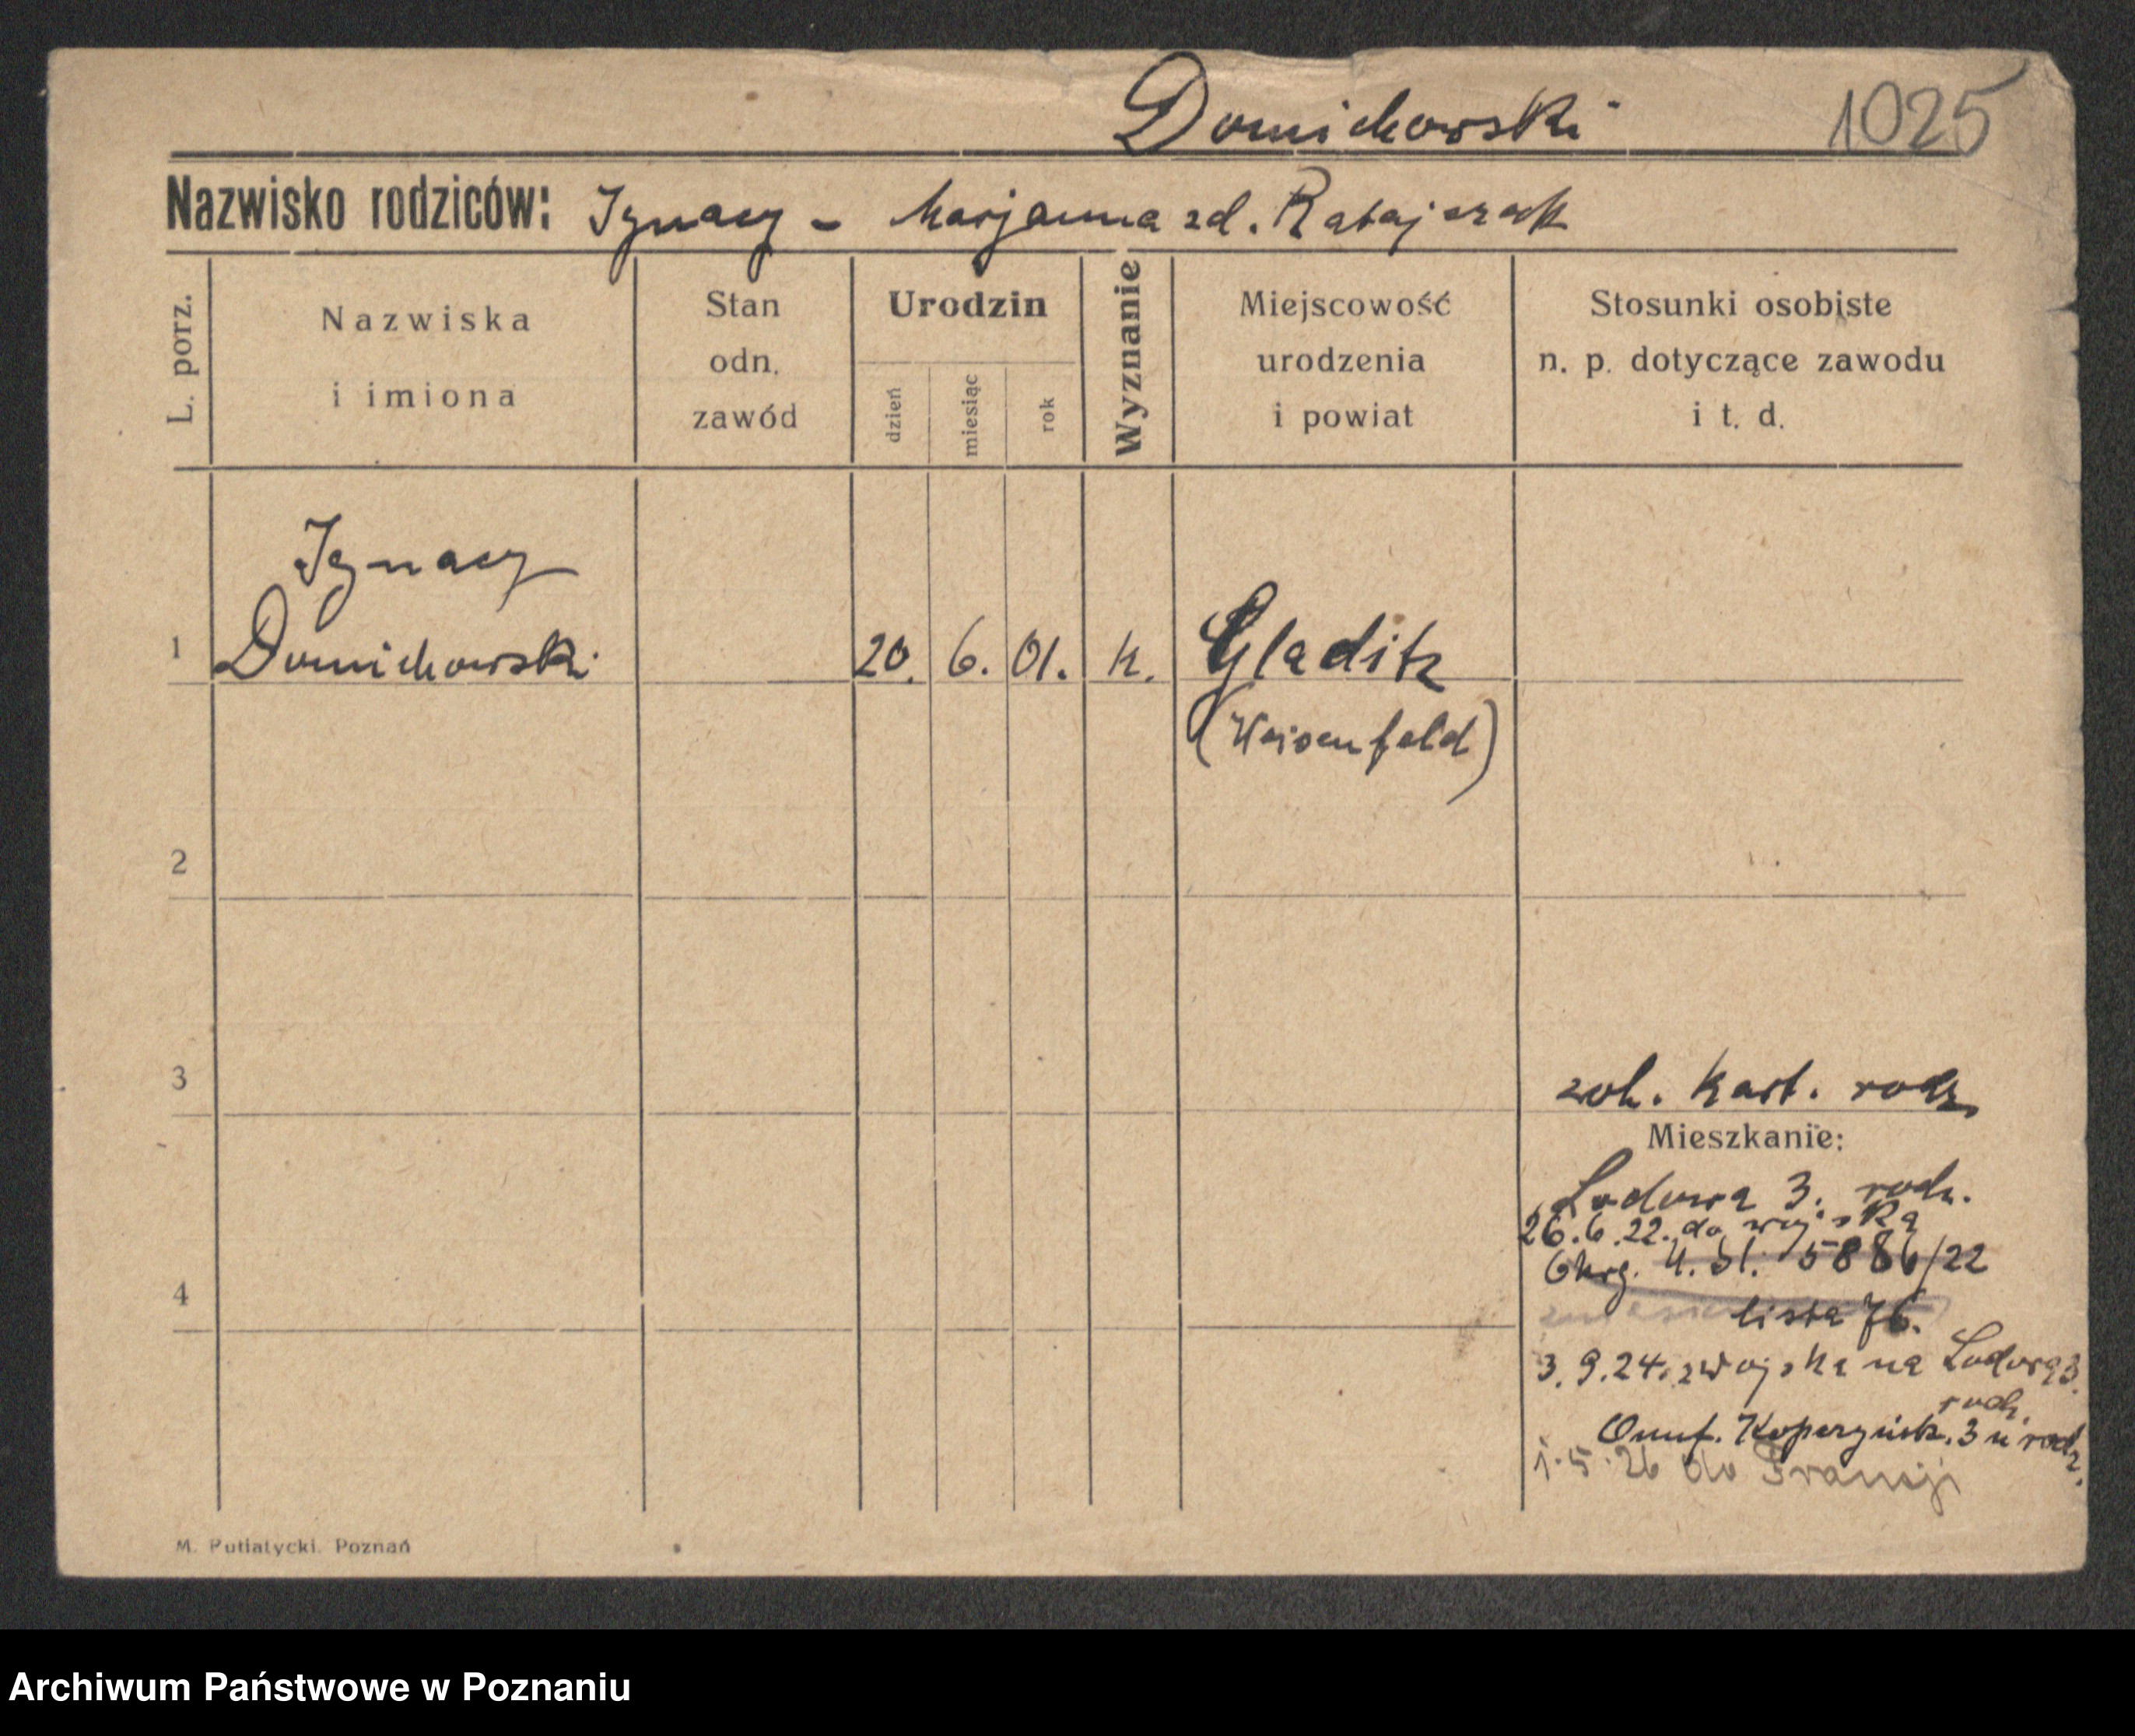 Domichowski 1025
Nazwisko rodziców: Ignacy - Marjanna zd. Ratajczak
L. porz.
Nazwiska
i imiona
Stan
odn.
zawód
Urodzin
dzień
miesiąc
rok
Wyznanie
Miejscowość
urodzenia
i powiat
Stosunki osobiste
n. p. dotyczące zawodu
i t. d.
Ignacy
1 Domichowski 20. 6. 01. k. Gladitz
(Weisenfeld)
2
3
zob. kart. rodz.
Mieszkanie:
4
Lodowa 3. rodz.
26.6.22. do wojska
5886/22
lista 76.
3.9.24. z wojska na Lodową 3.
rodz.
3 u rodz.
1.5.26 do Francji
M. Putiatycki. Poznań
Archiwum Państwowe w Poznaniu